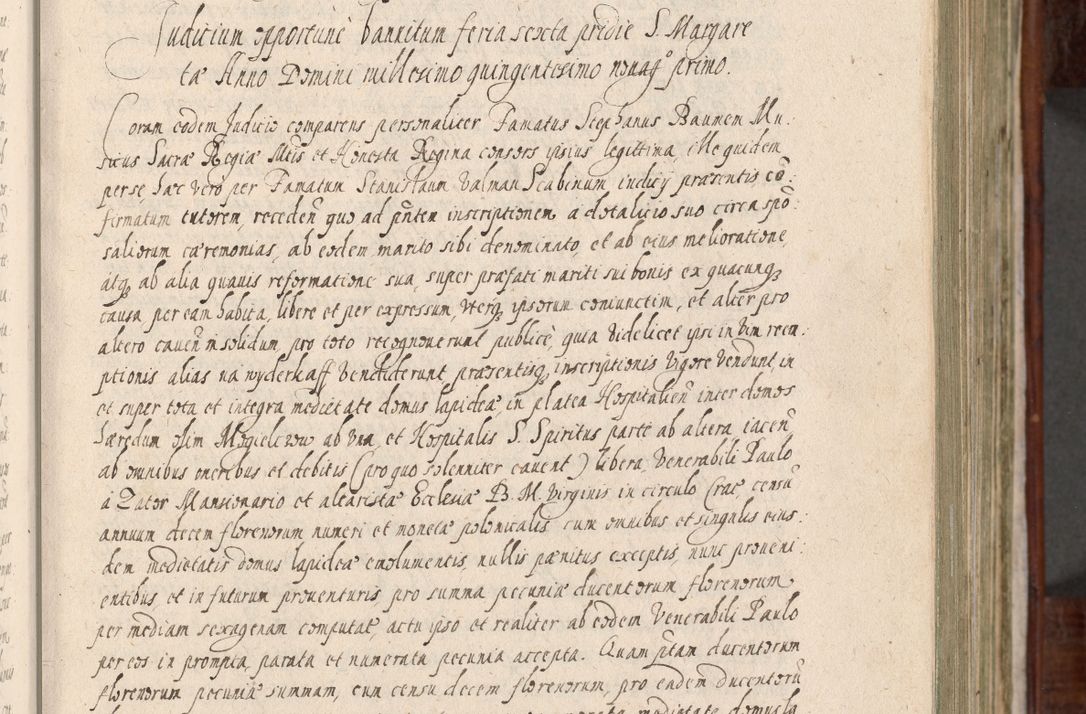 Judicium opportunè bannitum feria sexta pridie S. Margare
tæ Anno Domini millesimo quingentesimo nonagº primo.
Coram eodem Judicio comparens personaliter Famatus Stephanus Baumen Mu:
sicus Sacræ Regiæ Mtis et Honesta Regina consors ipsius legittima, ille quidem
per se, hæc verò per Famatum Stanislaum Valman Scabinum iudicij præsentis cō:
firmatum tutorem, recedeñ quo ad pñtem inscriptionem a dotalicio suo circa spō:
saliorum cæremonias, ab eodem marito sibi denominato, et ab eius melioratione,
atq́ ab alia quauis reformatione sua, super præfati mariti sui bonis ex quacunq́
causa per eam habita, libere et per expressum, vterq́ ipsorum coniunctim, et alter pro
altero caueñ in solidum, pro toto recognouerunt publicè, quia videlicet ipsi in vim reem:
ptionis alias na wyderkaff vendiderunt præsentisq́ inscriptionis vigore vendunt, in
et super tota et integra medietate domus lapideæ, in platea Hospitalieñ inter domos
hæredum olim Mogielczow ab vna, et Hospitalis S. Spiritus parte ab altera iaceñ
ab omnibus oneribus et debitis (pro quo solenniter cauent) libera, Venerabili Paulo
à Zator Mansionario et altaristæ Ecclesiæ B. M. Virginis in circulo Crac̃, censū
annuum decem florenorum numeri et monetæ polonicalis cum omnibus et singulis eius:
dem medietatis domus lapideæ emolumentis, nullis pænitus exceptis, nunc proueni:
entibus, et in futurum prouenturis, pro summa pecuniæ ducentorum florenorum
per mediam sexagenam computat, actu ipso et realiter ab eodem Venerabili Paulo
per eos in prompta, parata et numerata pecunia accepta. Quam p̃tam ducentorum
florenorum pecuniæ summam, cum censu decem florenorum, pro eadem ducentorū
medietate domus la